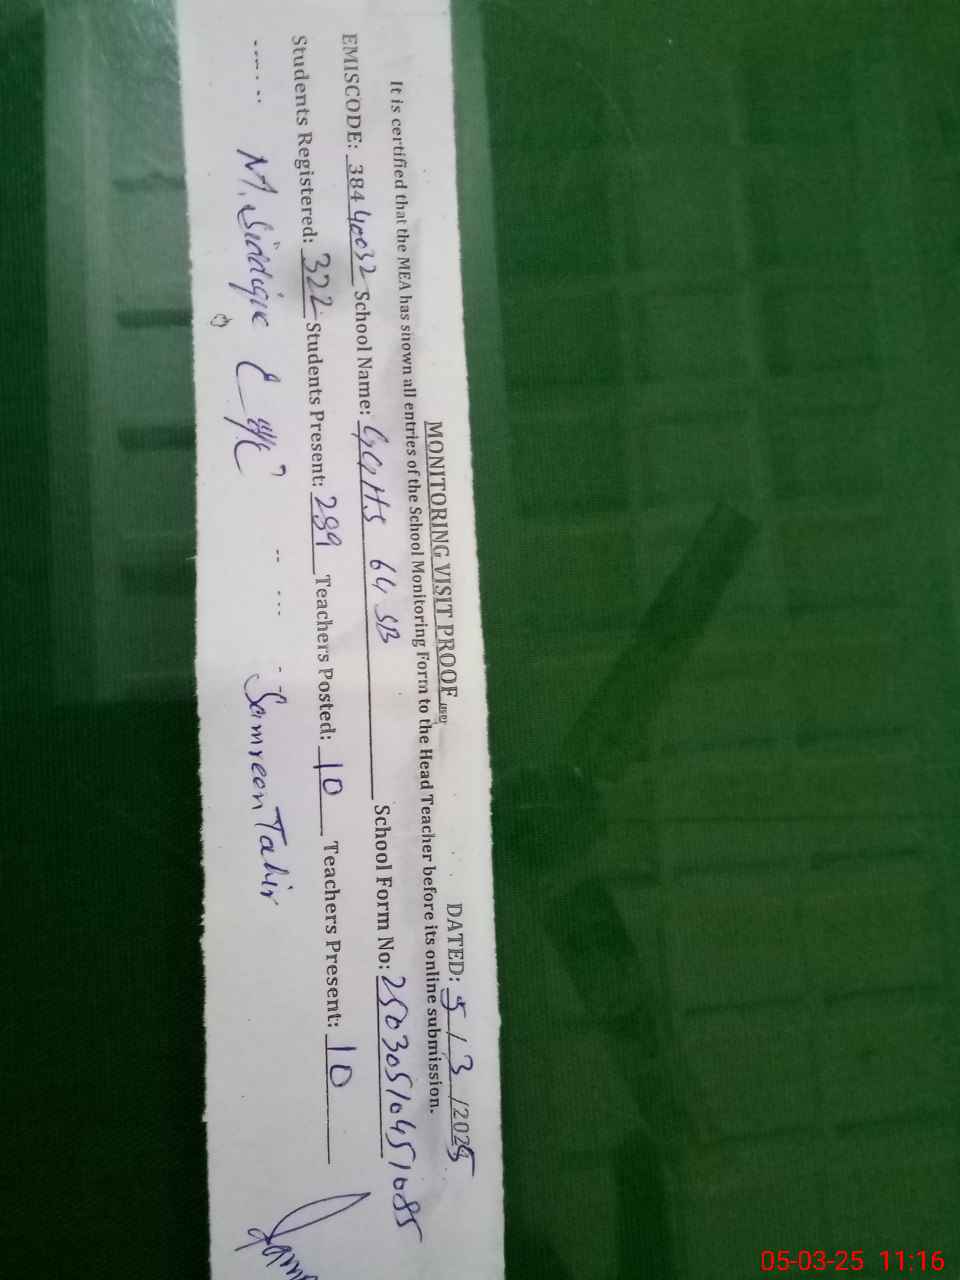 MONITORING VISIT PROOF
DATED: 5 / 3 /2025
It is certified that the MEA has shown all entries of the School Monitoring Form to the Head Teacher before its online submission.
EMISCODE: 38440032 School Name: GGHS 64 SB School Form No: 25030510451085
Students Registered: 322 Students Present: 289 Teachers Posted: 10 Teachers Present: 10
M. Siddique Samreen Tahir
05-03-25 11:16